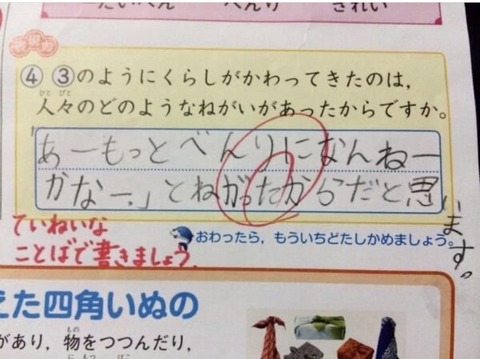 たいへん べんり きれい
④ ③のようにくらしがかわってきたのは,
ひと びと
人々のどのようなねがいがあったからですか。
「あーもっとべんりになんねー
かなー。」とねがったからだと思
います。
ていねいな
ことばで書きましょう。
おわったら,もういちどたしかめましょう。
えた四角いぬの
もの
があり,物をつつんだり,